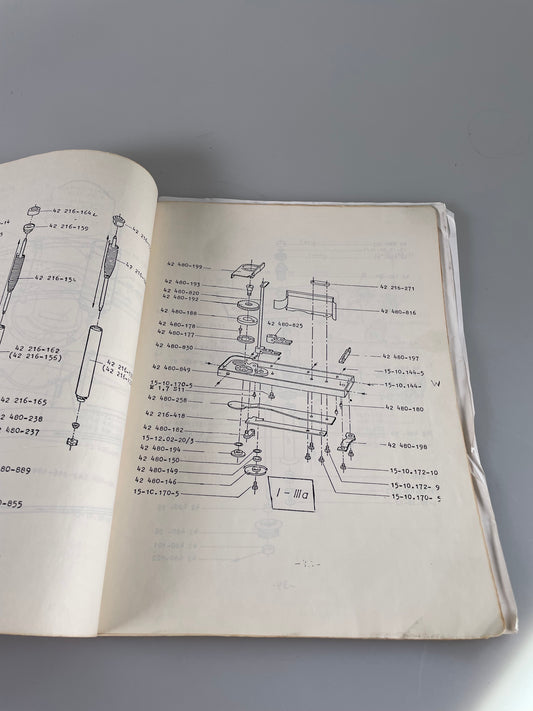 42 216-164
42 216-159
42 216-
42 216-154
42 216-
42 216-162
(42 216-156)
42 216-
(42 216-
42 216-165
480-238
480-237
80-889
0-855
42 480-199
42 480-193
42 480-820
42 480-192
42 480-188
42 480-178
42 480-177
42 480-850
42 480-849
15-10.170-5
42 480-258
42 216-418
42 480-182
15-12.02-20/3
42 480-194
42 480-150
42 480-149
42 480-146
15-10.170-5
42 480-825
42 216-271
42 480-816
42 480-197
15-10.144-5
15-10.144-
W
42 480-180
42 480-198
15-10.172-10
15-10.172- 9
15-10.170- 5
I - IIIa